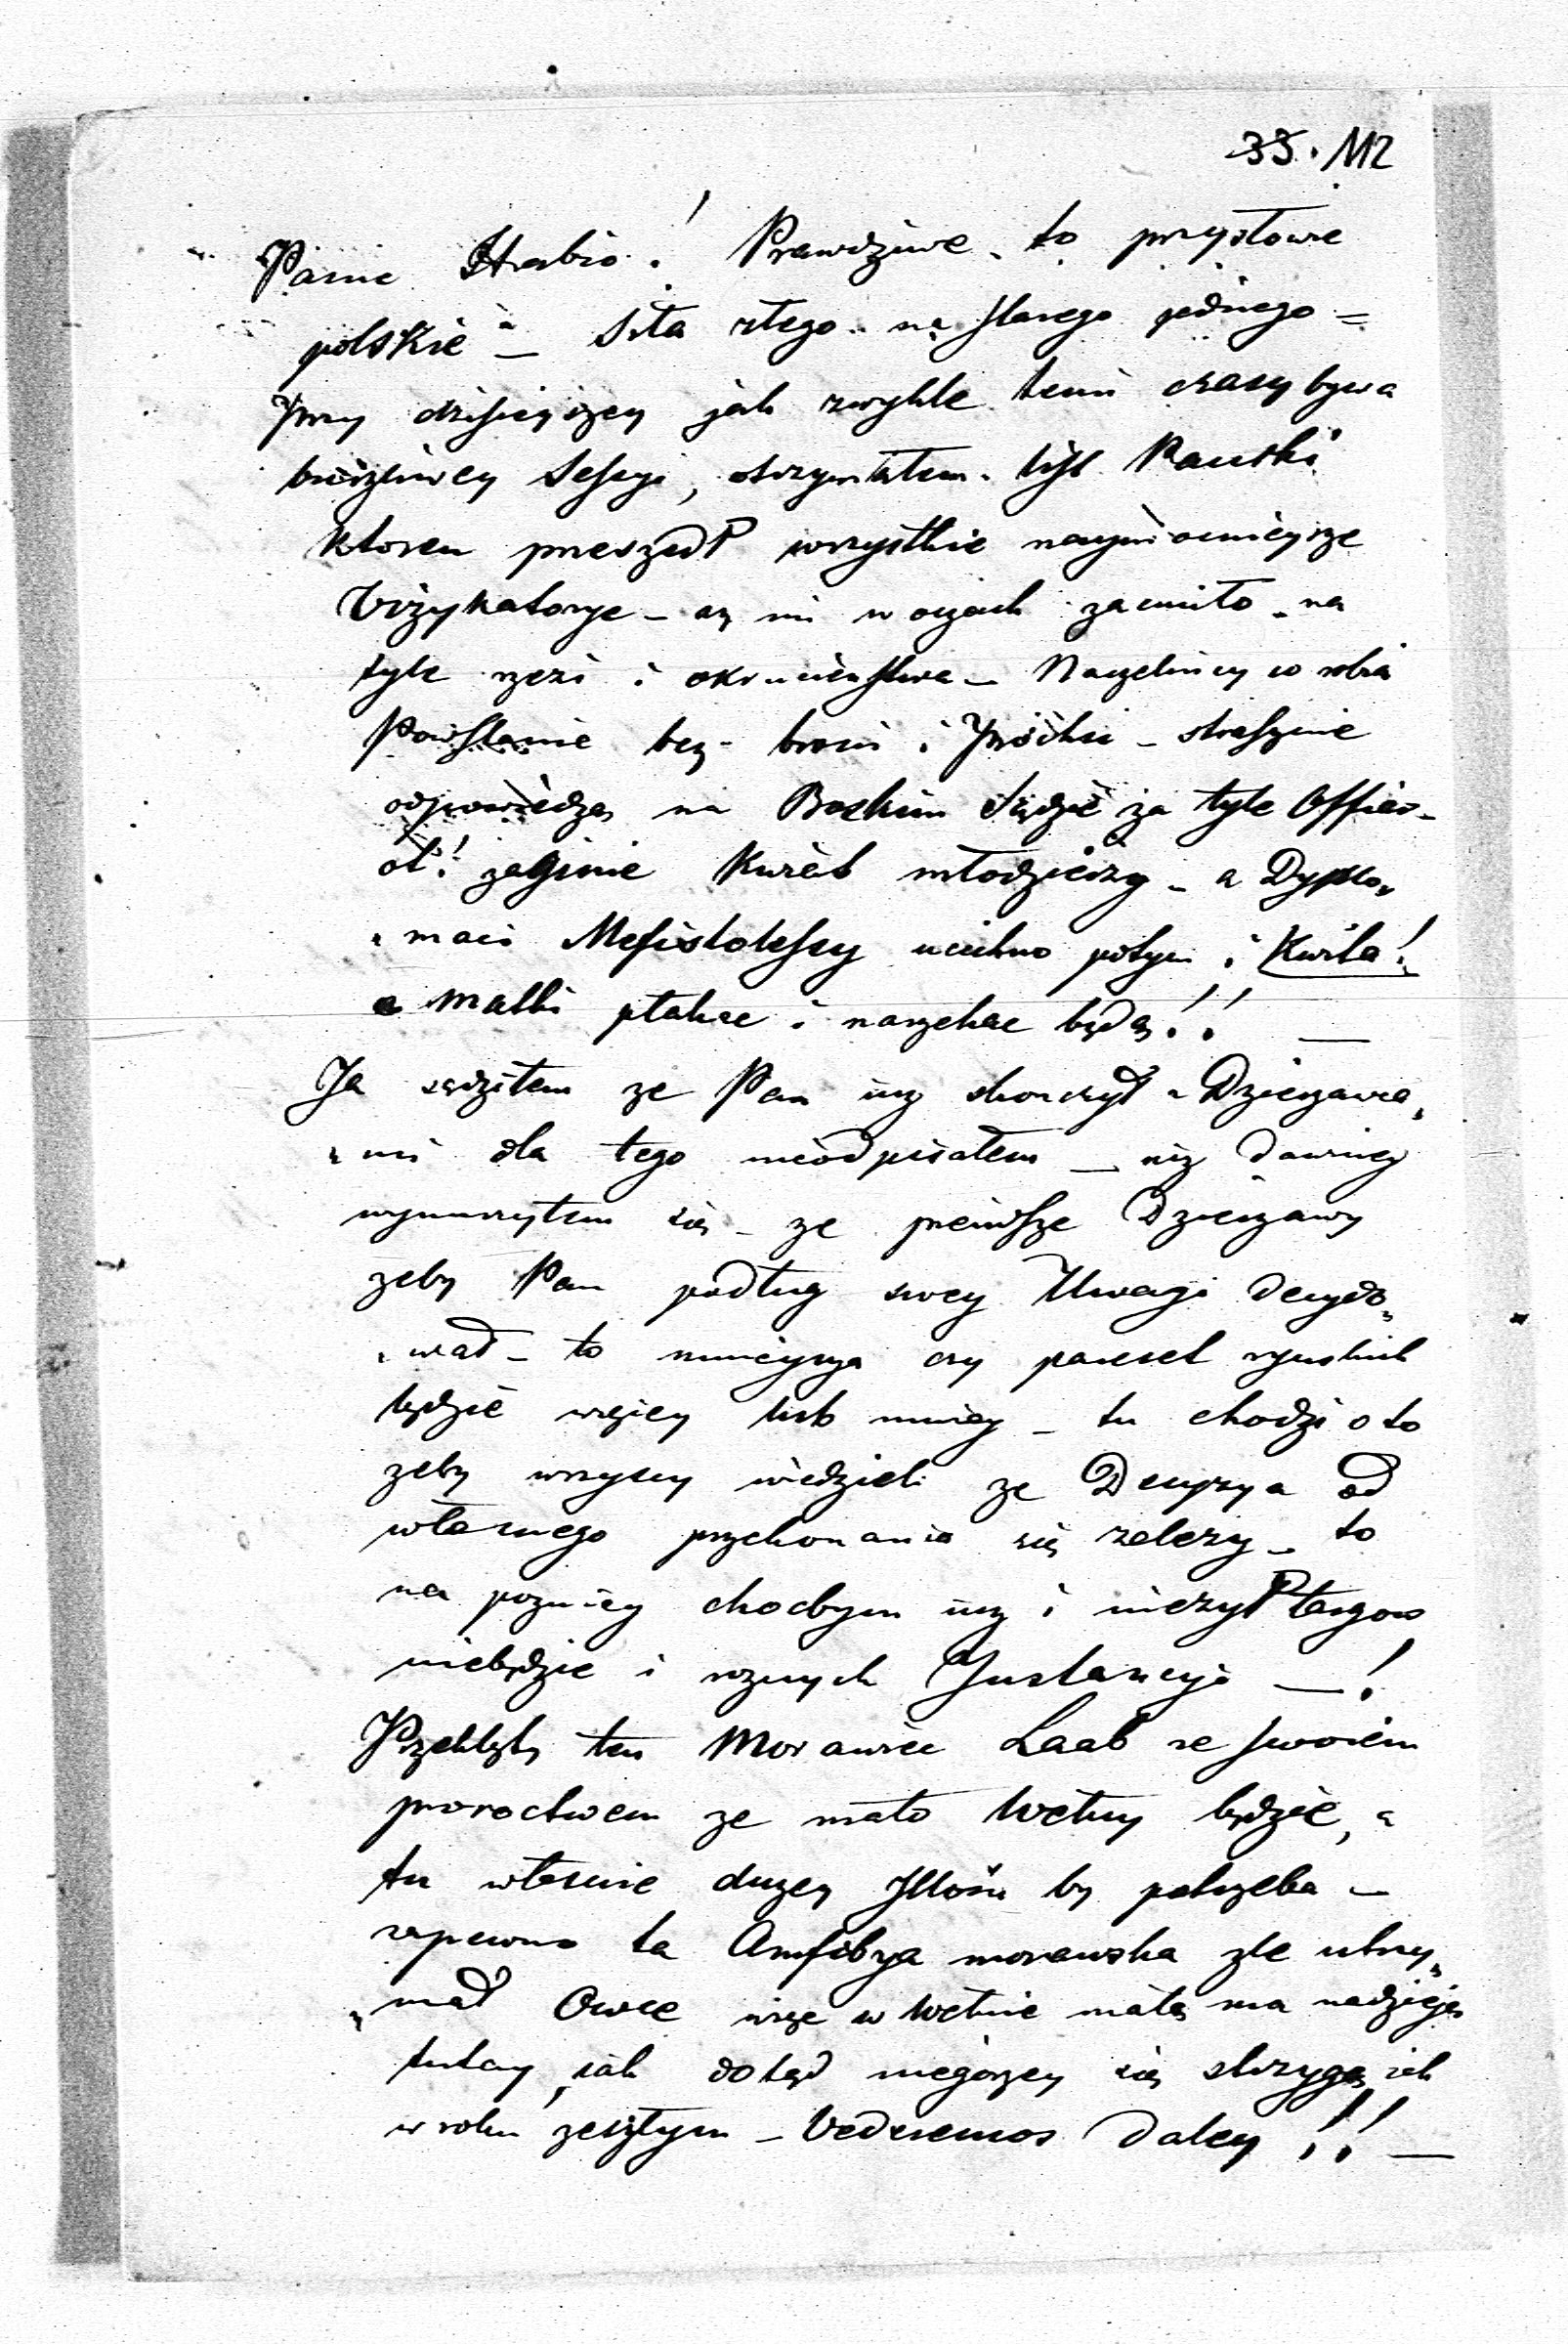 35. 112
Panie Hrabio! Prawdziwe to przysłowie
polskie – Siła złego na ſlarego jednego =
przy dzisieyszey jak zwykle temi czasy bywa
burzliwey Seſsyi, otrzymałem list Pauski
ktoren przeszedł wszystkie naymocnieysze
Vizykatorye – aż mi w oczach zaćmiło – na
tyle rzezi i okrucieństwa – Naczelnicy co robią
Powſtanie bez broni i Prochu – straſznie
odpowiedzą na Boskim Sądzie za tyle Offiar –
ot! zaginie kwiat młodzieży – a Dyplo„
„maci Mefistofelſcy ucichno potym i Kwita!
a Matki płakać i narzekać będą!! —
Ja sądziłem ze Pan iuz skonczył z Dzierzawca„
„mi dla tego nieodpisałem — niz dawniey
wynurzyłem się – ze pierwſze Dzierzawy
zeby Pan podług swey Uwagi decydo„
„wał – to mnieysza czy pareset ryńskich
będzie więcey lub mniey – tu chodzi o to
zeby wszyscy wiedzieli ze Decyzya od
własnego przekonania się zalezy – to
na pozniey chocbym iuz i niezył targow
niebędzie i roznych Instancyi —!
Przeklęty ten Morawiec Laab ze ſwoiem
proroctwem ze mało Wełny będzie, a
tu własnie duzey Jllości by potrzeba –
zapewne ta Amfibya morawska zle utrzy„
„mał Owce więc w Wełnie małą ma nadzieję
tutay jak dotąd niegorzey się strzygą jak
w roku zeszłym – Vederemos daley!! —